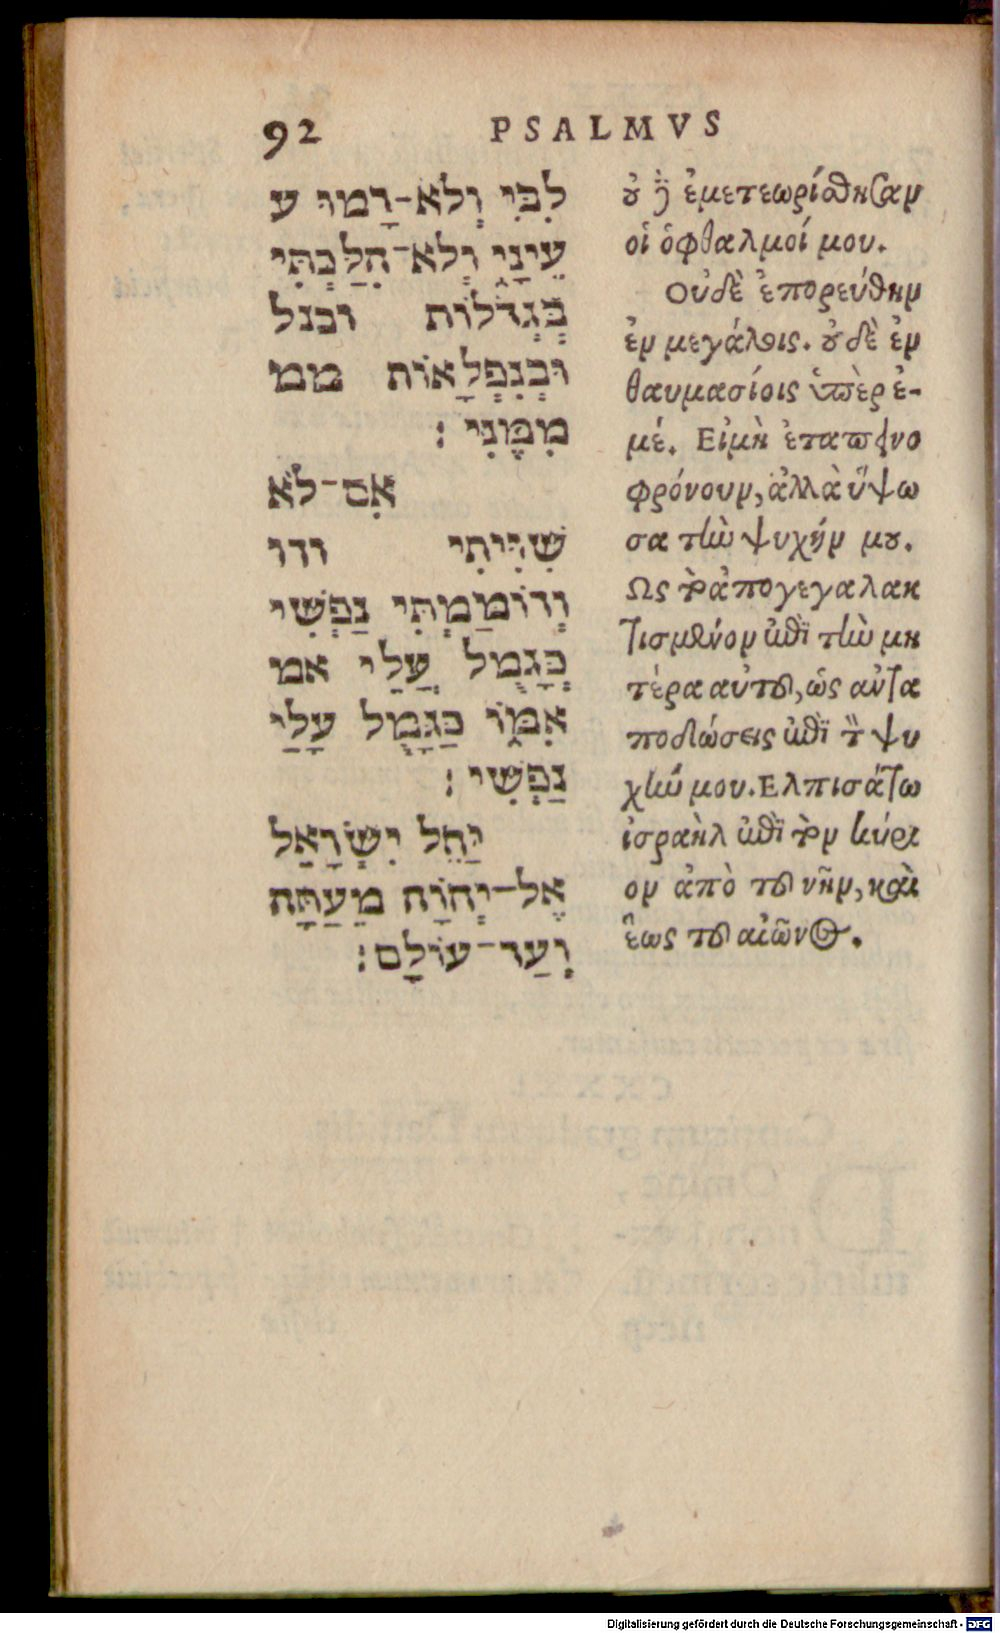 92 PSALMVS
לִבִּי וְלֹא־רָמוּ ע
עֵינָי וְלֹא־הִלַּכְתִּי
בִּגְדֹלוֹת ובנל
וּבְנִפְלָאוֹת ממ
מִמֶּנִּי׃
אִם־לֹא
שִׁוִּיתִי ודו
וְדוֹמַמְתִּי נַפְשִׁי
כְּגָמֻל עֲלֵי אמ
אִמּוֹ כַּגָּמֻל עָלַי
נַפְשִׁי׃
יַחֵל יִשְׂרָאֵל
אֶל־יְהוָֹה מֵעַתָּה
וְעַד־עוֹלָם׃
οὐδὲ ἐμετεωρίσθησαν
οἱ ὀφθαλμοί μου.
Οὐδὲ ἐπορεύθην
ἐν μεγάλοις. οὐδὲ ἐν
θαυμασίοις ὑπὲρ ἐ-
μέ. Εἰμὴ ἐταπεινο
φρόνουν, ἀλλὰ ὕψω
σα τὴν ψυχήν μου.
Ως τὸ ἀπογεγαλακ
τισμένον ἐπὶ τὴν μη
τέρα αὐτοῦ, ὡς ἀντα
ποδώσεις ἐπὶ τὴν ψυ
χήν μου. Ελπισάτω
ἰσραὴλ ἐπὶ τὸν κύρι
ον ἀπὸ τοῦ νῦν, καὶ
ἕως τοῦ αἰῶνος.
Digitalisierung gefördert durch die Deutsche Forschungsgemeinschaft - DFG